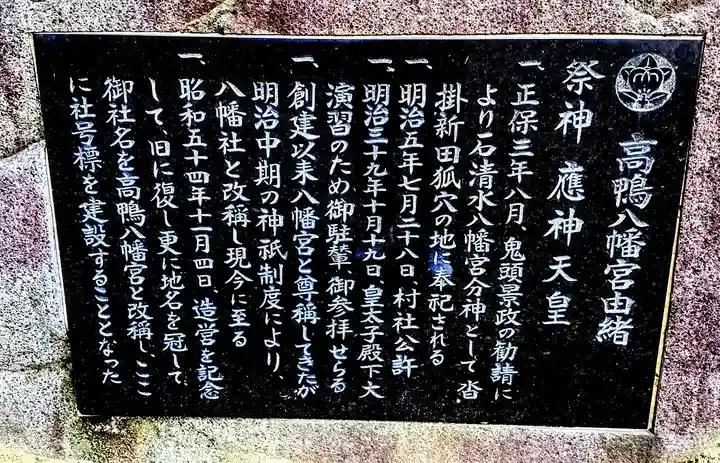 高鴨八幡宮由緒
祭神 應神天皇
一、正保三年八月、鬼頭景政の勧請に
より石清水八幡宮分神として沓
掛新田狐穴の地に奉祀される
一、明治五年七月二十八日、村社公許
一、明治三十九年十月十九日、皇太子殿下大
演習のため御駐輦、御参拝せらる
一、創建以来八幡宮と尊稱してきたが
明治中期の神祇制度により、
八幡社と改稱し現今に至る
一、昭和五十四年十一月四日、造営を記念
して、旧に復し更に地名を冠して
御社名を高鴨八幡宮と改稱し、ここ
に社号標を建設することとなった